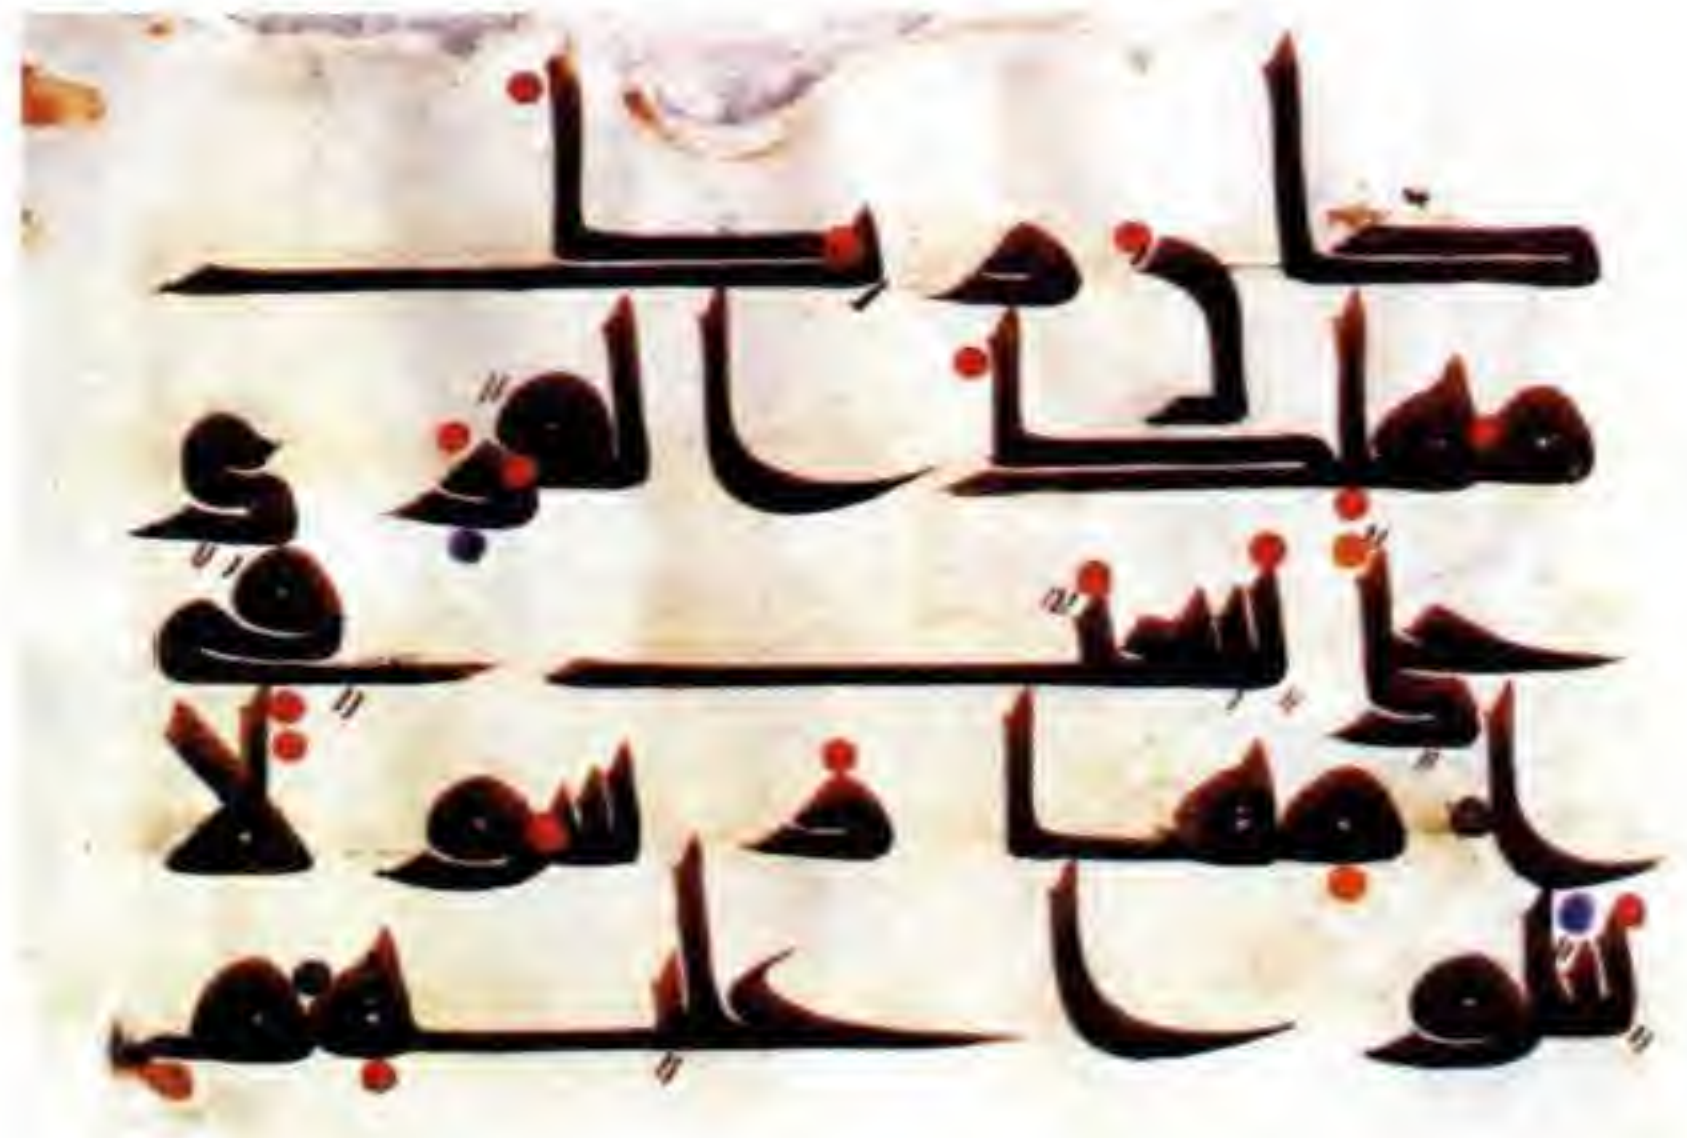 كان ربك
مهلك القرى
حتى يبعث في
امها رسولا
يتلوا عليهم